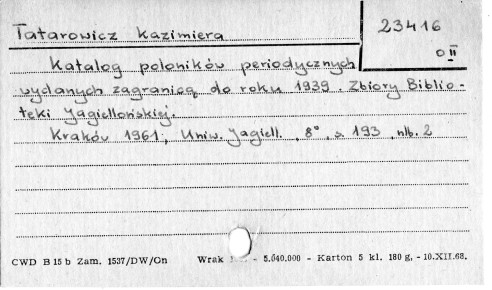 Tatarowicz Kazimiera
23416
O II
Katalog poloników periodycznych
wydanych zagranicą do roku 1939. Zbiory Biblio-
teki Jagiellońskiej.
Kraków 1961, Uniw. Jagiell. 8° s. 193, nlb. 2
CWD B 15 b Zam. 1537/DW/On Wrak - 5.040.000 - Karton 5 kl. 180 g. - 10.XII.68.